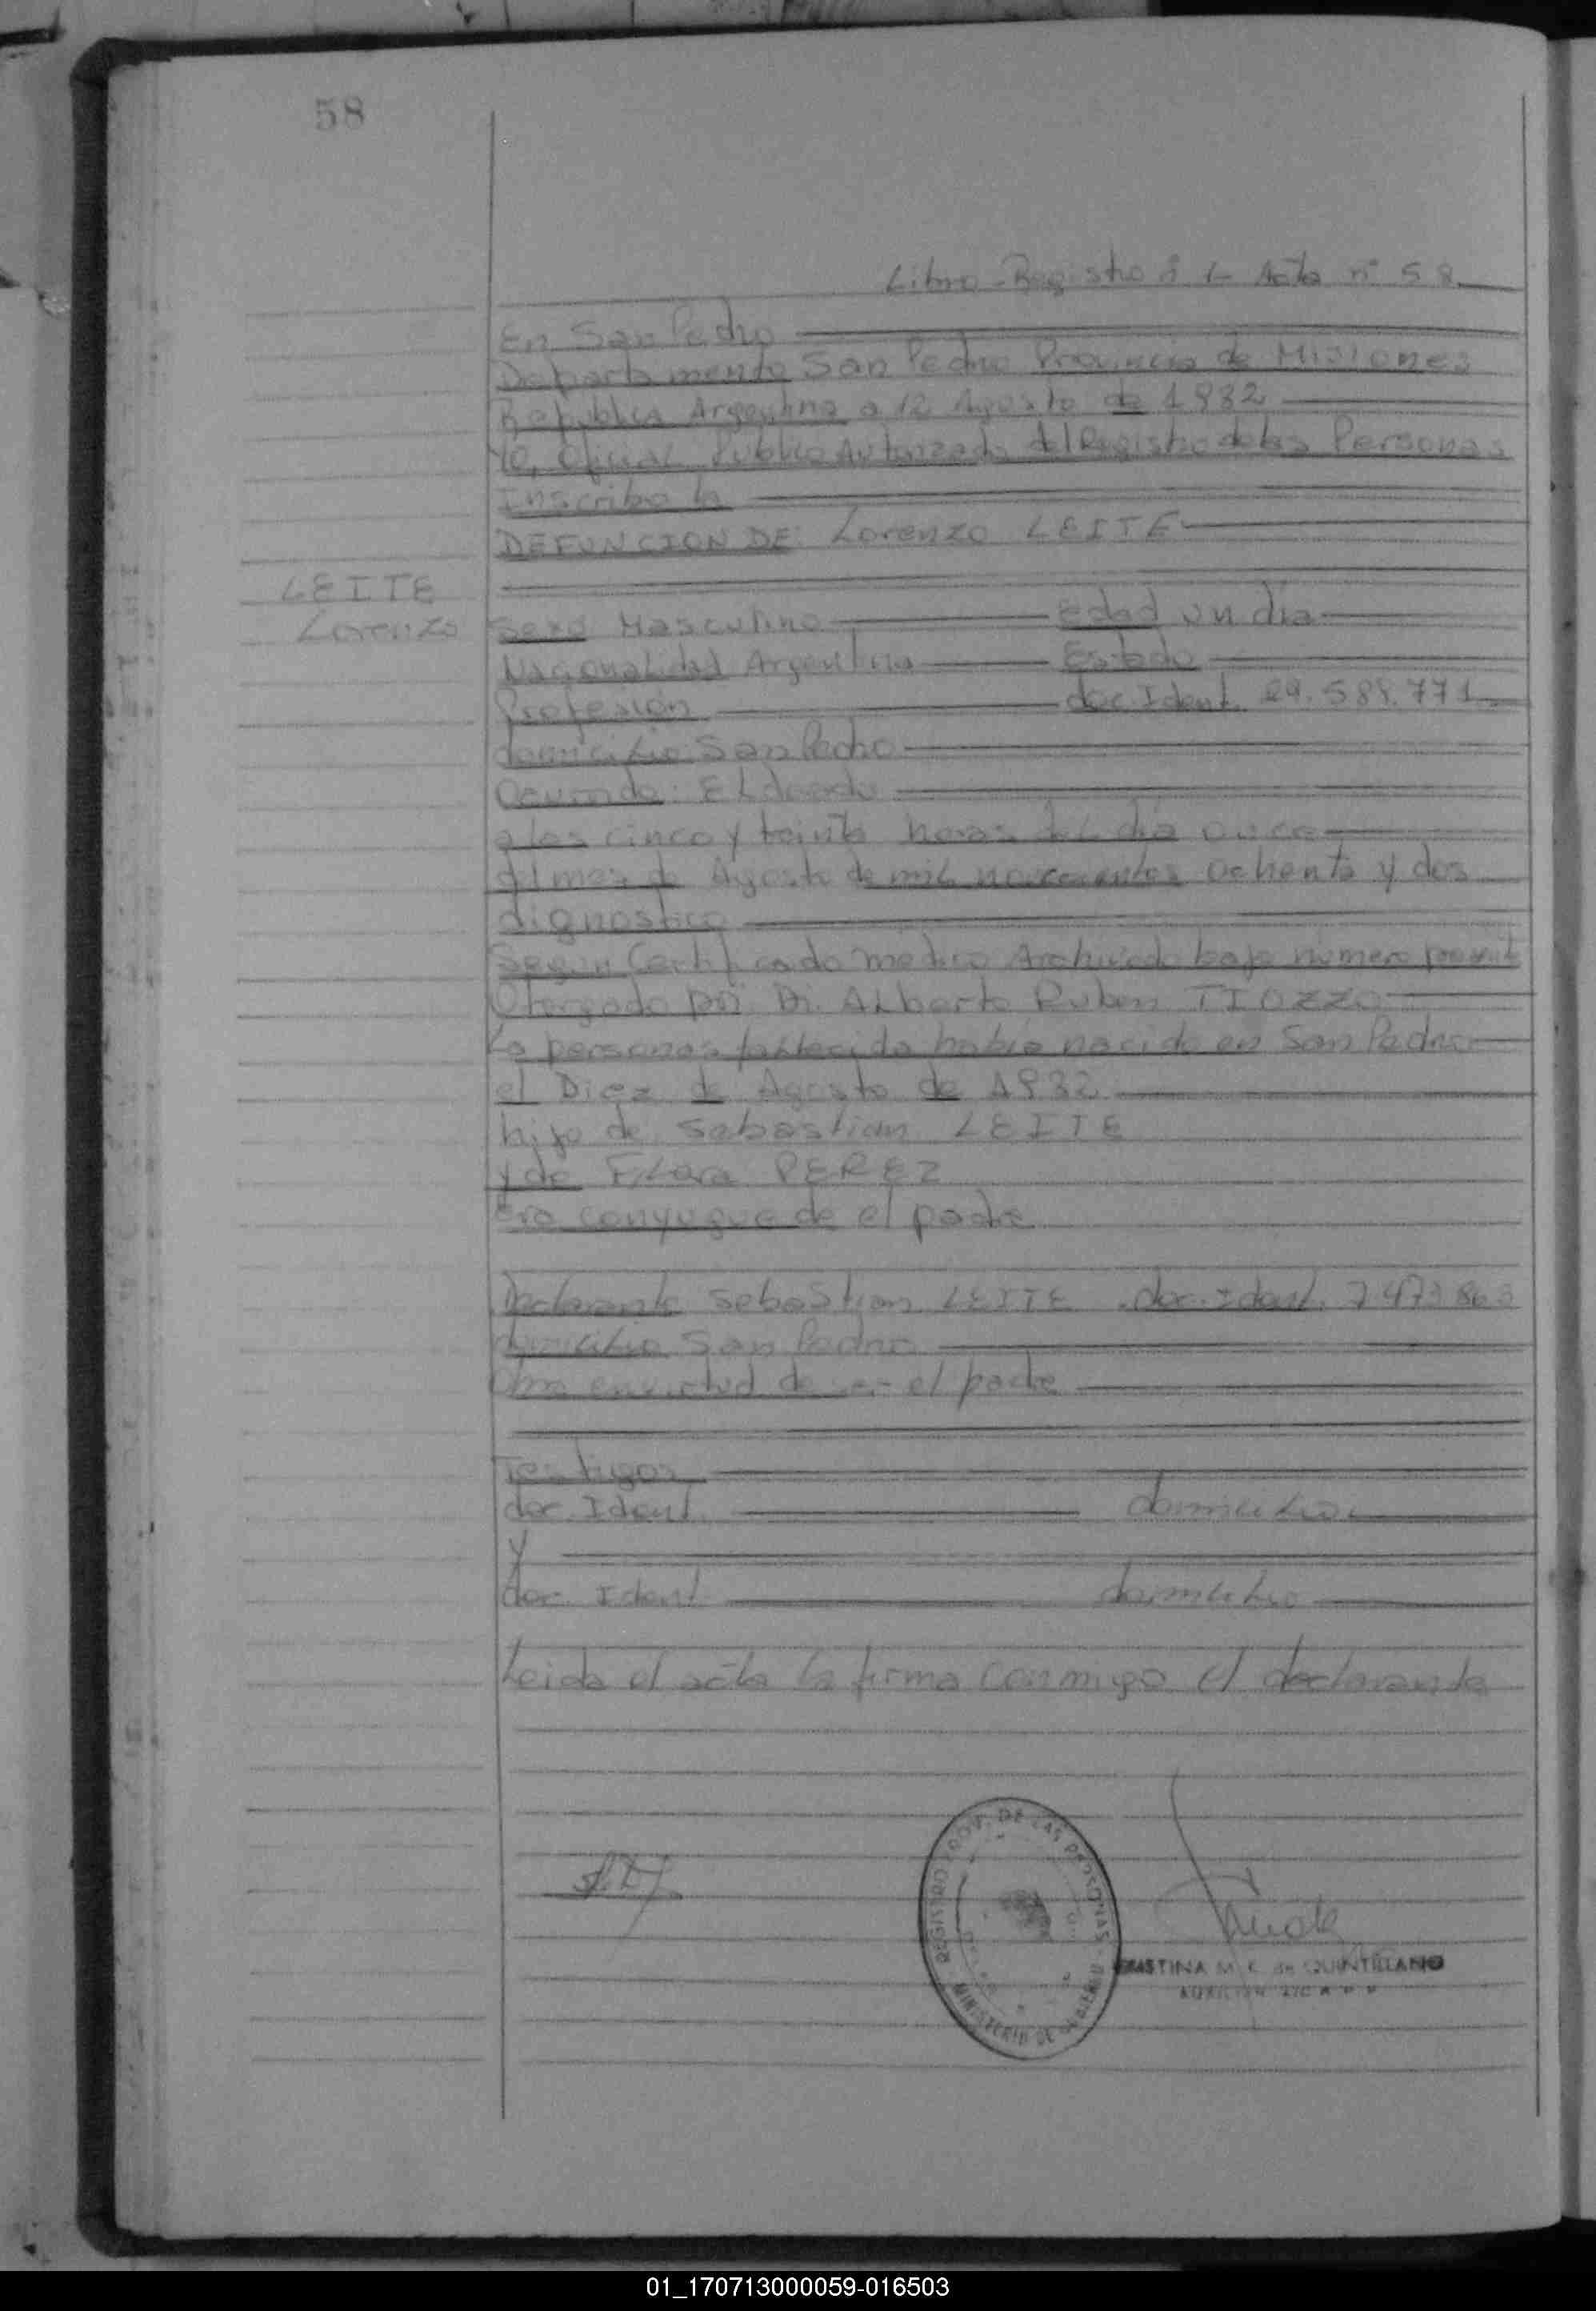 58
Libro-Registro n° 1- Acta n° 58
En San Pedro
Departamento San Pedro Provincia de Misiones
Republica Argentina a 12 Agosto de 1982
Yo, Oficial Publico Autorizado del Registro de las Personas
Inscribo la
DEFUNCION DE: Lorenzo LEITE
LEITE
Lorenzo
Sexo Masculino Edad un día
Nacionalidad Argentina Estado
Profesión doc. Ident. 29.588.771
domicilio San Pedro
Ocurrida: Eldorado
a las cinco y treinta horas del día once
del mes de Agosto de mil novecientos ochenta y dos
dignostico
Segun Certificado médico Archivado bajo número
Otorgado por Dr. Alberto Ruben TIOZZO
La personas fallecida había nacido en San Pedro
el Diez de Agosto de 1982
hijo de Sebastian LEITE
y de Flora PEREZ
Era conyugue de el padre
Declarante Sebastian LEITE doc. Ident. 7.473.863
domicilio San Pedro
Obra en virtud de ser el padre
Testigos
doc. Ident. domicilio
y
doc. Ident domicilio
Leida el acta la firma conmigo el declarante
REGISTRO PROV. DE LAS PERSONAS
MINISTERIO DE GOBIERNO
CRISTINA M. K. de QUINTILLANO
AUXILIAR
01_170713000059-016503